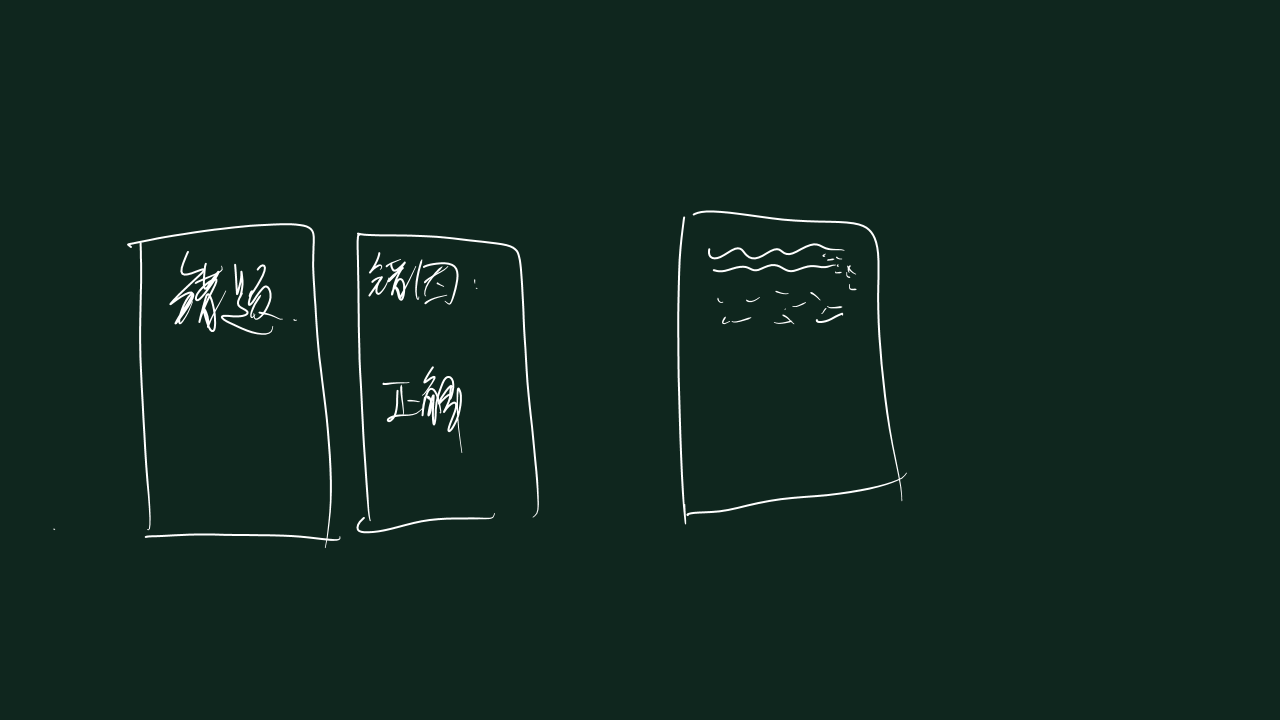 错题.
错因:
正解